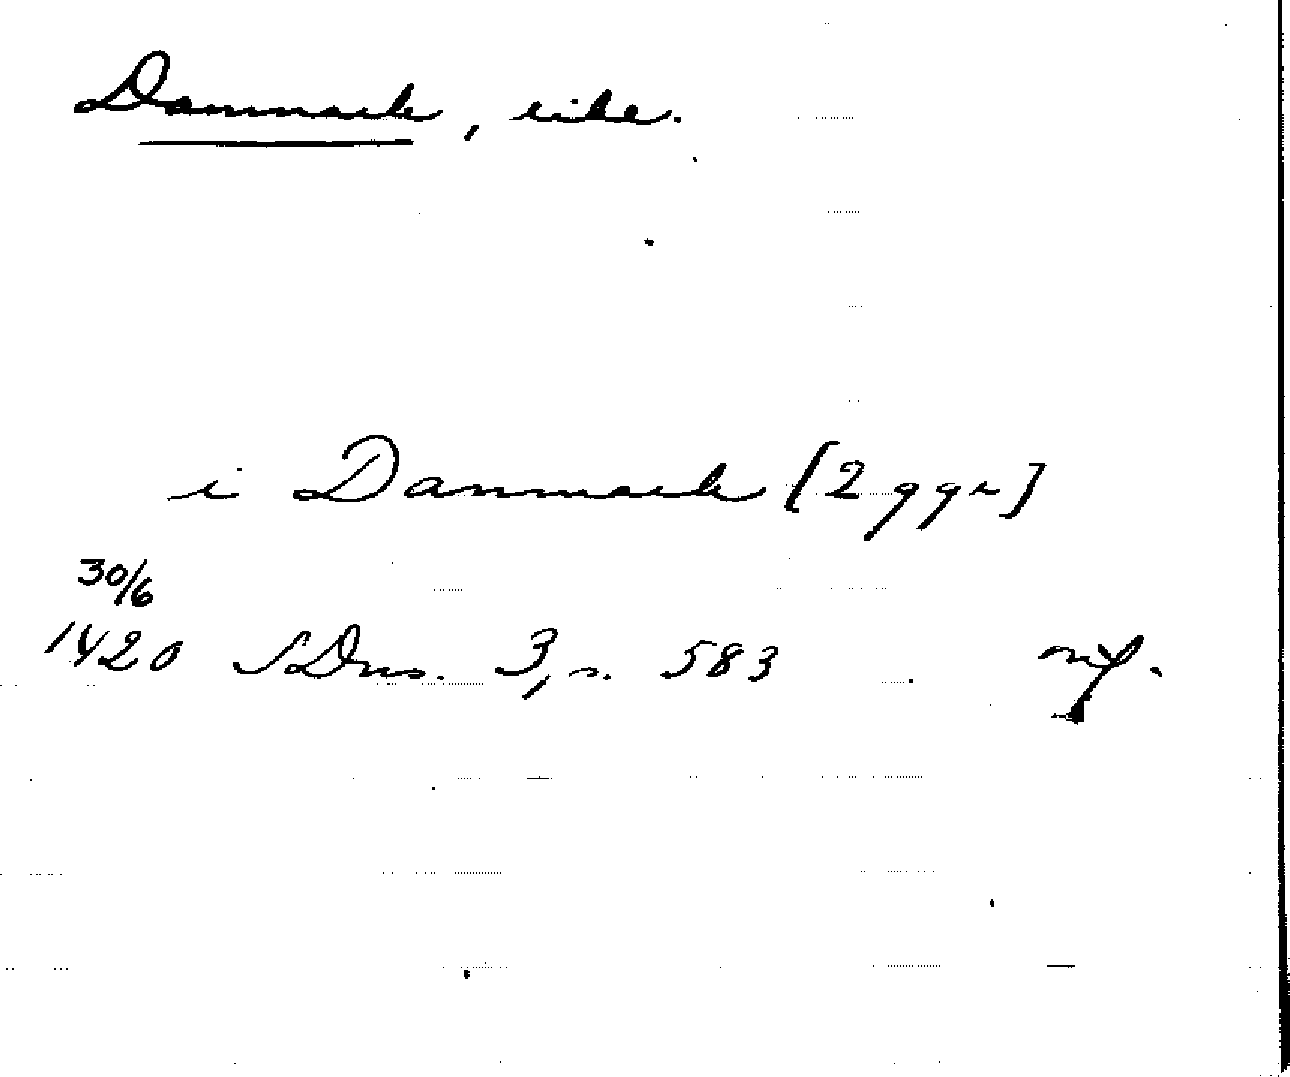 Danmark, rike.
i Danmark [2 ggr]
30/6
1420 SDns. 3, n. 583 nyf.